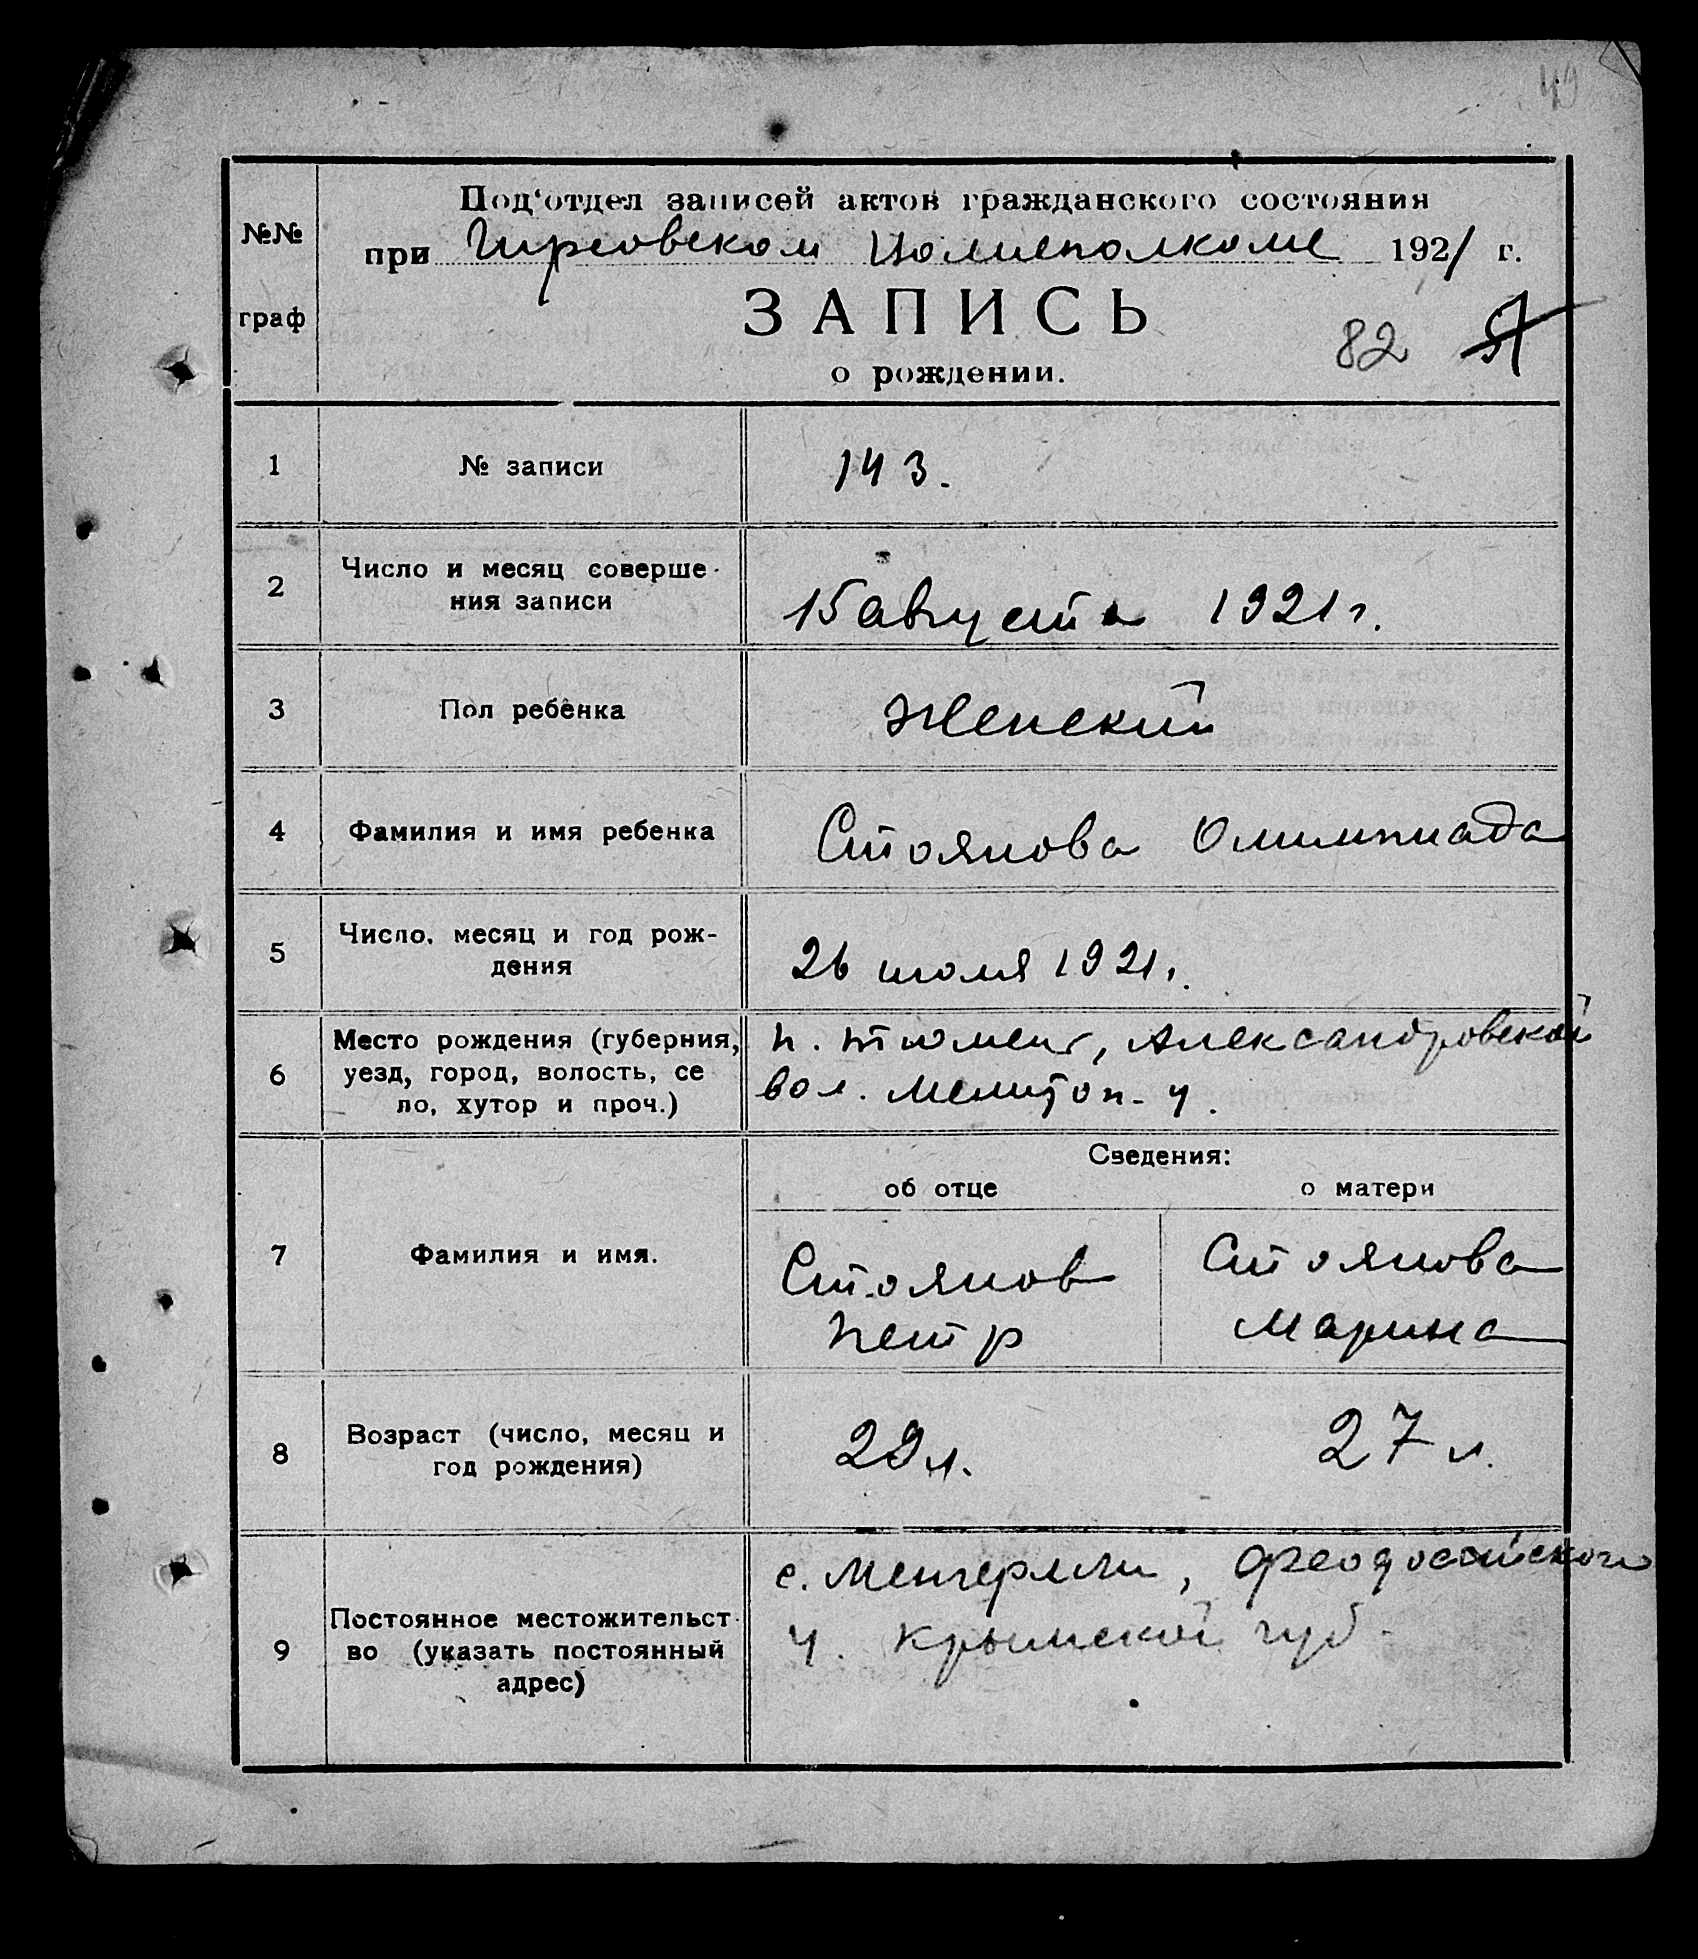 49
№№
граф
Под'отдел записей актов гражданского состояния
при Гирсовском Волисполкоме 1921 г.
ЗАПИСЬ
о рождении.
82
1
№ записи
143.
2
Число и месяц соверше-
ния записи
15 августа 1921 г.
3
Пол ребенка
Женский
4
Фамилия и имя ребенка
Стоянова Олимпиада
5
Число, месяц и год рож-
дения
26 июля 1921.
6
Место рождения (губерния,
уезд, город, волость, се
ло, хутор и проч.)
п. Тюмень, Александровской
вол. Мелитоп. у.
7
Фамилия и имя.
Сведения:
об отце
о матери
Стоянов
Петр
Стоянова
Марина
8
Возраст (число, месяц и
год рождения)
29 л.
27 л.
9
Постоянное местожительст-
во (указать постоянный
адрес)
с. Менгерлли, Феодосийского
у. Крымской губ.